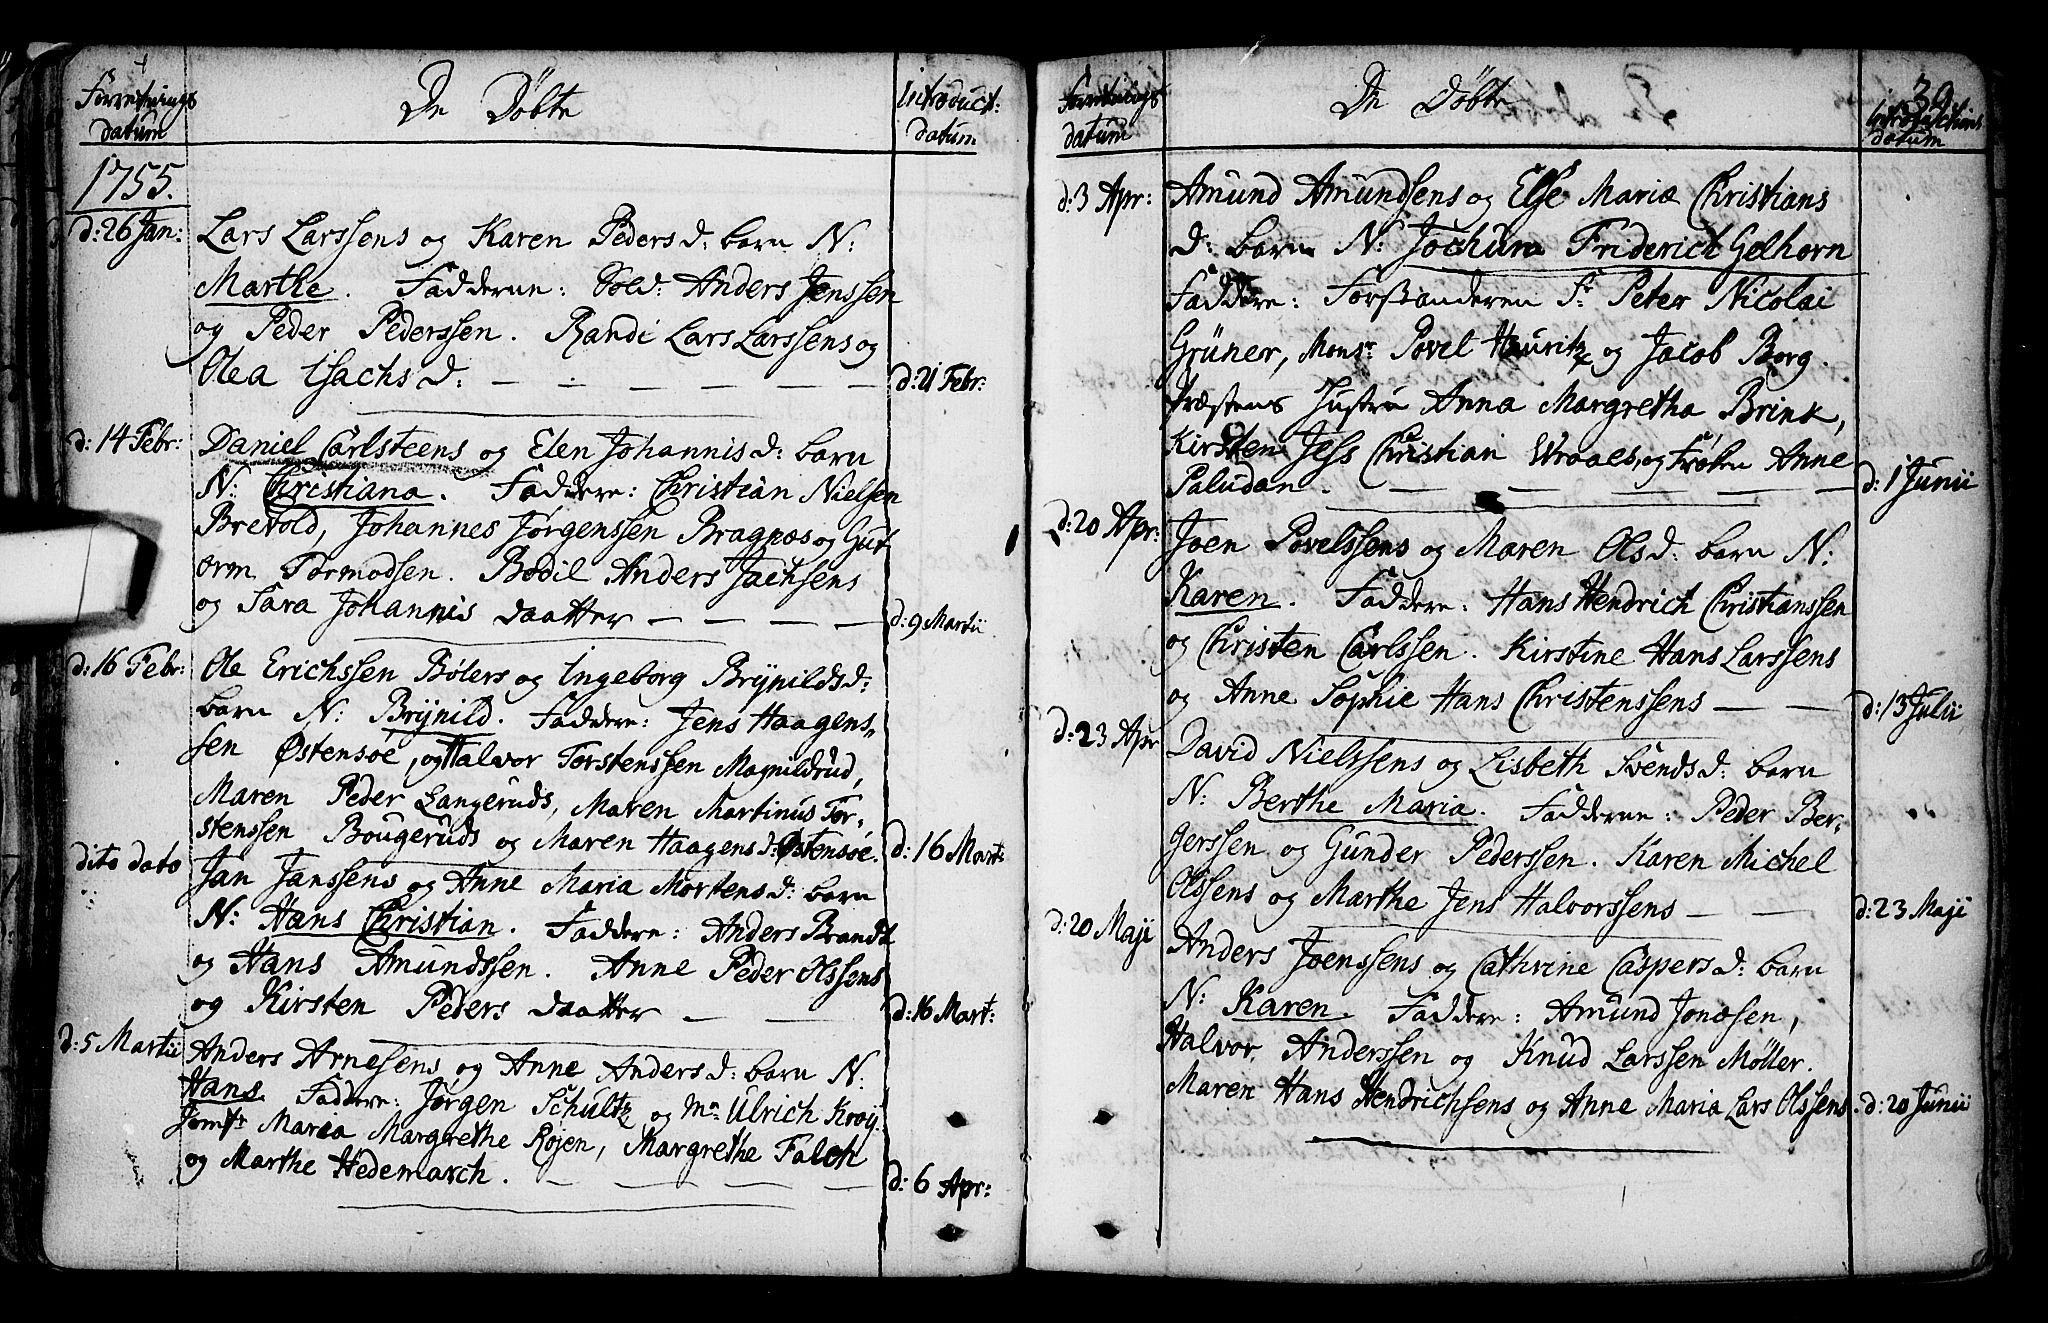 Forretnings
datum
De Døbte
Introduct:
datum
1755.
d: 26 Jan:
Lars Larssens og Karen Peders D: barn N:
Marthe. Fadderne: Sold: Anders Jenssen
og Peder Pederssen. Randi Lars Larssens og
Olea Isachs D: — — — — — — d: 21 Febr:
d: 14 Febr:
Daniel Carlsteens og Elen Johannis D: barn
N: Christiana. Faddere: Christian Nielsen
Brevold, Johannes Jørgenssen Bragnæs og Gut
orm Tormodsen. Bodil Anders Jachsens
og Sara Johannis daatter — — — — d: 9 Martii
d: 16 Febr:
Ole Erichssen Bølers og Ingeborg Brÿnilds D:
barn N: Brÿnild. Faddere: Jens Haagens-
sen Østensøe, og Halvor Torstenssen Magnildrud,
Maren Peder Langeruds, Maren Martinus Tor-
stenssen Bougeruds og Maren Haagens D: Østensøe. d: 16 Mart:
dito dato
Jan Janssens og Anne Maria Mortens D: barn
N: Hans Christian. Faddere: Anders Brandt
og Hans Amundssen. Anne Peder Olssens
og Kirsten Peders daatter — — d: 16 Mart:
d: 5 Martii
Anders Arnesens og Anne Anders D: barn N:
Hans. Faddere: Jørgen Schultz og Mr Ulrich Kroÿ.
Jomfr Maria Margrethe Røjen, Margrethe Falch
og Marthe Hedemarch. — — — — d: 6 Apr:
Forretnings
datum
De Døbte
39
Introductions
datum
d: 3 Apr:
Amund Amundsens og Else Maria Christians
D: barn N: Jochum Friderich Gelhorn
Faddere: Forstanderen Sr Peter Nicolai
Grüner, Monsr Povel Hauritz og Jacob Borg.
Præstens Hustru Anna Margretha Brink,
Kirsten Jess Christian Wraaes, og Frøken Anne
Paludan. — — — — — — d: 1 Junii
d: 20 Apr:
Joen Povelssens og Maren Ols D: barn N:
Karen. Faddere: Hans Hendrich Christianssen
og Christen Carlssen. Kirstine Hans Larssens
og Anne Sophie Hans Christenssens — — d: 13 Julii
d: 23 Apr
David Nielssens og Lisbeth Svends D: barn
N: Berthe Maria. Fadderne: Peder Ber-
gerssen og Gunder Pederssen. Karen Michel
Olssens og Marthe Jens Halvorssens — — d: 23 Maji
d: 20 Maji
Anders Joenssens og Cathrine Caspers D: barn
N: Karen. Faddere: Amund Jonæsen,
Halvor Anderssen og Knud Larssen Møller.
Maren Hans Hendrichsens og Anne Maria Lars Olssens. d: 20 Junii